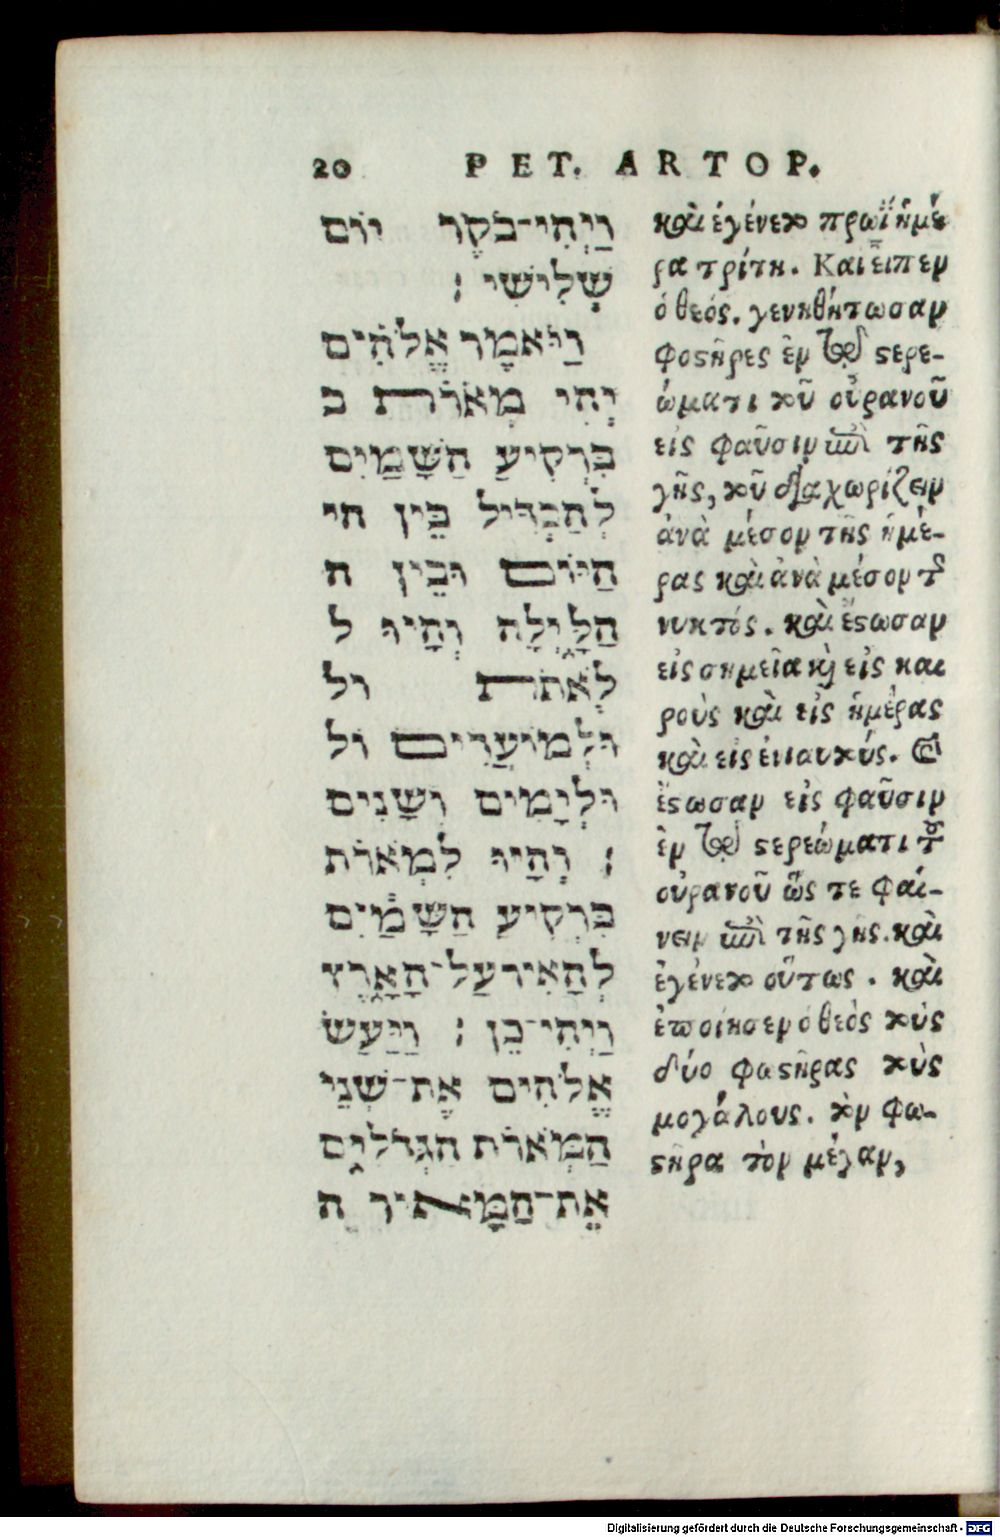 20 PET. ARTOP.
וַיְהִי־בֹקֶר יוֹם
שְׁלִישִׁי ׃
וַיֹּאמֶר אֱלֹהִים
יְהִי מְאֹרֹת בּ
בִּרְקִיעַ הַשָּׁמַיִם
לְהַבְדִּיל בֵּין הי
הַיּוֹם וּבֵין ה
הַלָּיְלָה וְהָיוּ ל
לְאֹתֹת ול
וּלְמוֹעֲדִים ול
וּלְיָמִים וְשָׁנִים
׃ וְהָיוּ לִמְאֹרֹת
בִּרְקִיעַ הַשָּׁמַיִם
לְהָאִיר עַל־הָאָרֶץ
וַיְהִי־כֵן ׃ וַיַּעַשׂ
אֱלֹהִים אֶת־שְׁנֵי
הַמְּאֹרֹת הַגְּדֹלִים
אֶת־הַמָּאוֹר ה
καὶ ἐγένετο πρωῒ ἡμέ
ρα τρίτη. Καὶ εἶπεν
ὁ θεός. γενηθήτωσαν
φοστῆρες ἐν τῷ στερε-
ώματι τοῦ οὐρανοῦ
εἰς φαῦσιν ἐπὶ τῆς
γῆς, τοῦ διαχωρίζειν
ἀνὰ μέσον τῆς ἡμέ-
ρας καὶ ἀνὰ μέσον τῆς
νυκτός. καὶ ἔστωσαν
εἰς σημεῖα καὶ εἰς και
ροὺς καὶ εἰς ἡμέρας
καὶ εἰς ἐνιαυτούς. Καὶ
ἔστωσαν εἰς φαῦσιν
ἐν τῷ στερεώματι τοῦ
οὐρανοῦ ὥς τε φαί-
νειν ἐπὶ τῆς γῆς. καὶ
ἐγένετο οὕτως . καὶ
ἐποίησεν ὁ θεὸς τοὺς
δύο φωστῆρας τοὺς
μογάλους. τὸν φω-
στῆρα τὸν μέγαν,
Digitalisierung gefördert durch die Deutsche Forschungsgemeinschaft - DFG